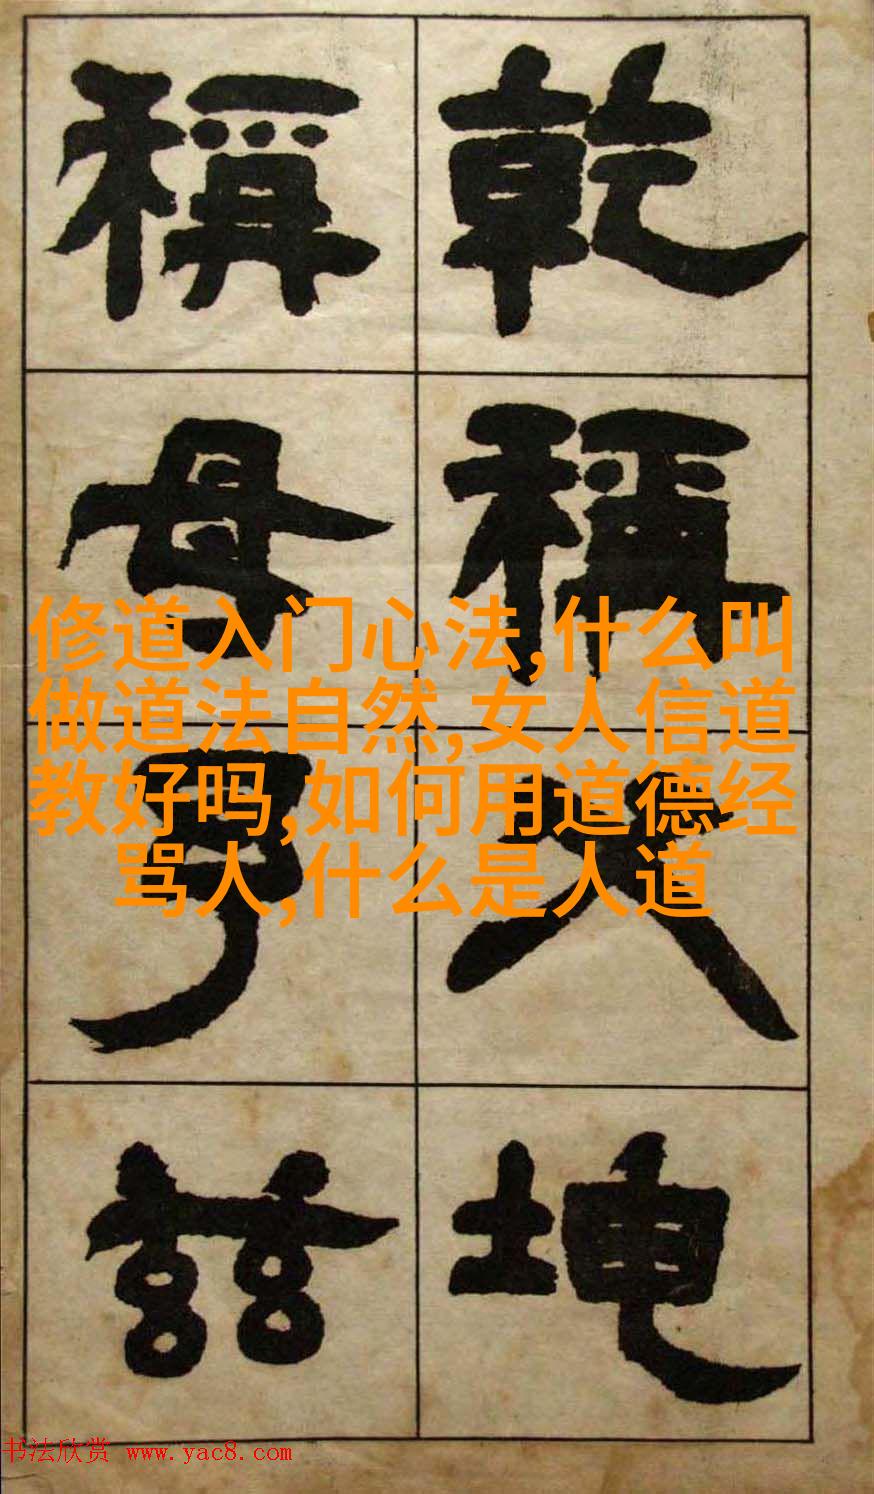 乾稱父坤
稱母予茲
修道入门心法,什么叫
做道法自然,女人信道
教好吗,如何用道德经
骂人,什么是人道
书法欣赏 www.yac8.com